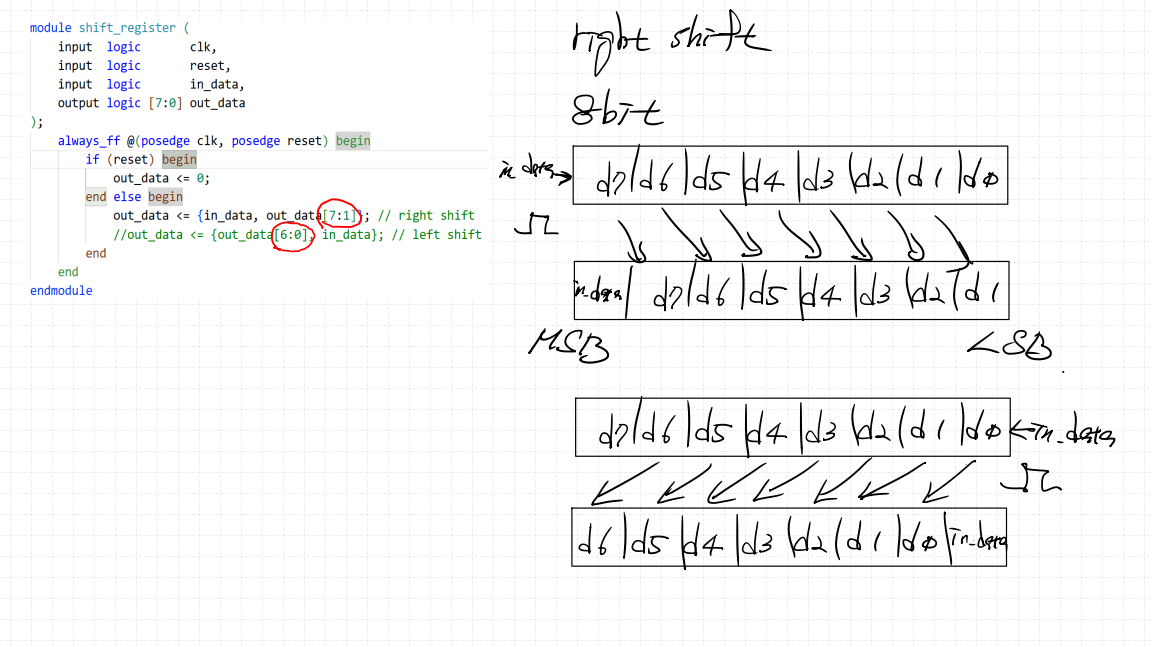 module shift_register (
input logic clk,
input logic reset,
input logic in_data,
output logic [7:0] out_data
);
always_ff @(posedge clk, posedge reset) begin
if (reset) begin
out_data <= 0;
end else begin
out_data <= {in_data, out_data[7:1]}; // right shift
//out_data <= {out_data[6:0], in_data}; // left shift
end
end
endmodule
right shift
8bit
in data d7 d6 d5 d4 d3 d2 d1 d0
in_data d7 d6 d5 d4 d3 d2 d1
MSB LSB
d7 d6 d5 d4 d3 d2 d1 d0 in_data
d6 d5 d4 d3 d2 d1 d0 in_data